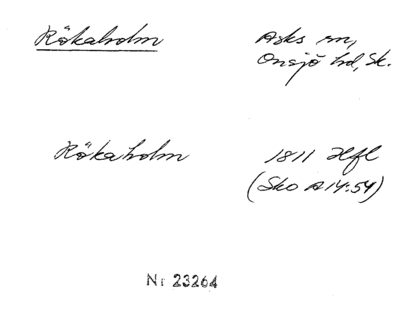 Rökaholm
Asks sn,
Onsjö hd, Sk.
Rökaholm
1811 Hfl
(Sko A14:54)
Nr 23264